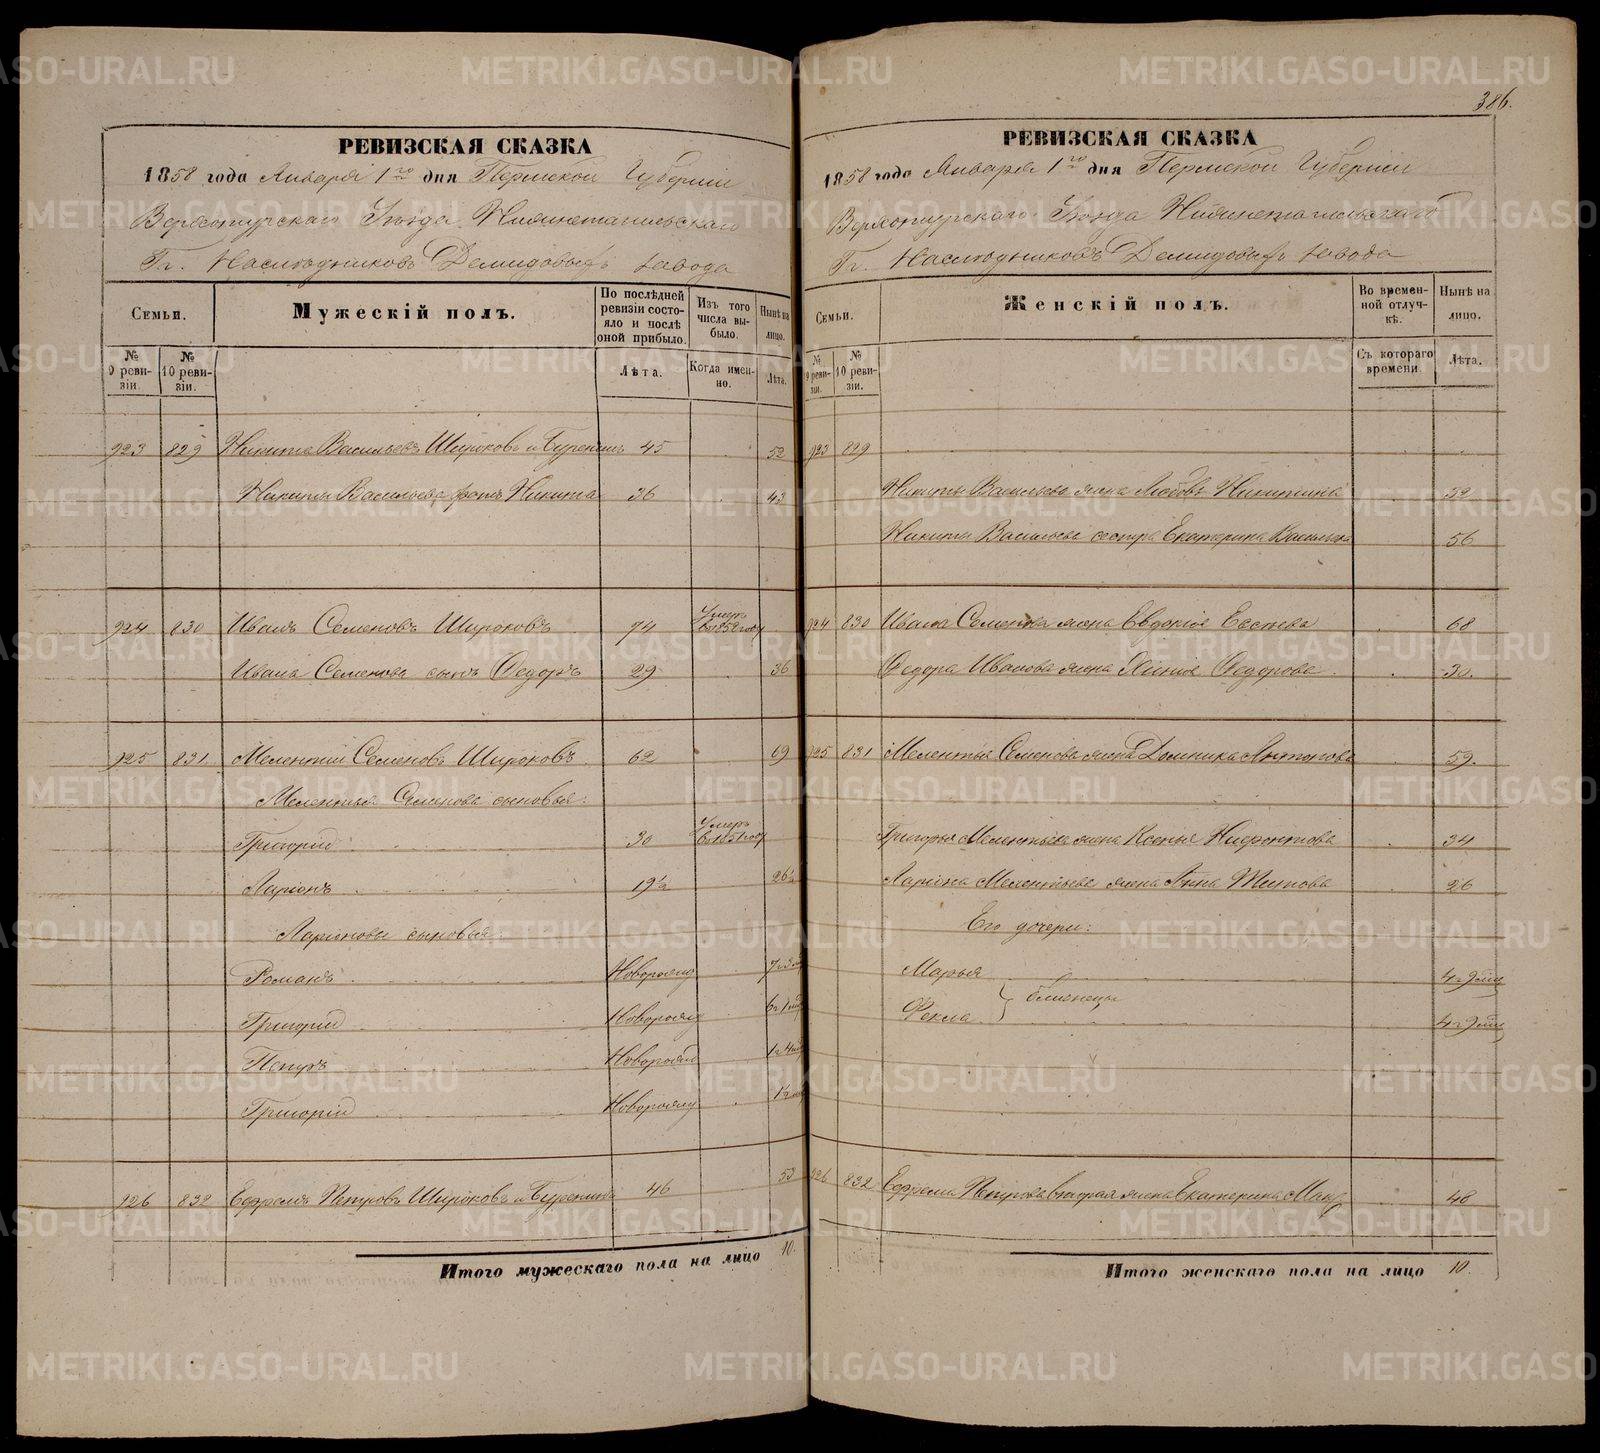 386.
РЕВИЗСКАЯ СКАЗКА
1858 года Января 1го дня Пермской Губернiи
Верхотурскаго Уѣзда Нижнетагильскаго
Гг. Наслѣдниковъ Демидовыхъ завода
Семьи.
Мужескiй полъ.
По послѣдней ревизiи состояло и послѣ оной прибыло.
Изъ того числа выбыло.
Нынѣ на лицо.
№ 9 ревизiи.
№ 10 ревизiи.
Лѣта.
Когда именно.
Лѣта.
923 829 Никита Васильевъ Широковъ и Буренинъ 45 52
Никиты Васильева братъ Никита 36 43
924 830 Иванъ Семеновъ Широковъ 74 Умеръ въ 1852 году
Ивана Семенова сынъ Федоръ 29 36
925 831 Мелентiй Семеновъ Широковъ 62 69
Мелентья Семенова сыновья:
Григорiй 30 Умеръ въ 1851 году
Ларiонъ 19½ 26½
Ларiоновы сыновья:
Романъ Новорожд
Григорiй Новорожд
Петръ Новорожд
Григорiй Новорожд
926 832 Ефремъ Петровъ Широковъ и Буренинъ 46 53
Итого мужескаго пола на лицо 10.
РЕВИЗСКАЯ СКАЗКА
1858 года Января 1го дня Пермской Губернiи
Верхотурскаго Уѣзда Нижнетагильскаго
Гг. Наслѣдниковъ Демидовыхъ завода
Семьи.
Женскiй полъ.
Во временной отлучкѣ.
Нынѣ на лицо.
№ 9 ревизiи.
№ 10 ревизiи.
Съ котораго времени.
Лѣта.
923 829
Никиты Васильева жена Любовь Никитина 39
Никиты Васильева сестра Екатерина 56
924 830 Ивана Семенова жена Евдокiя 68
Федора Иванова жена Федорова 30.
925 831 Мелентья Семенова жена Домника Антонова 59.
Григорья Мелентьева жена Ксенья Нифонтова 34
Ларiона Мелентьева жена Анна Титова 26
Его дочери:
Марья 4 г 9 мц
Фекла близнецы 4 г 9 мц
926 832 Ефрема Петрова вторая жена Екатерина 48
Итого женскаго пола на лицо 10.
METRIKI.GASO-URAL.RU